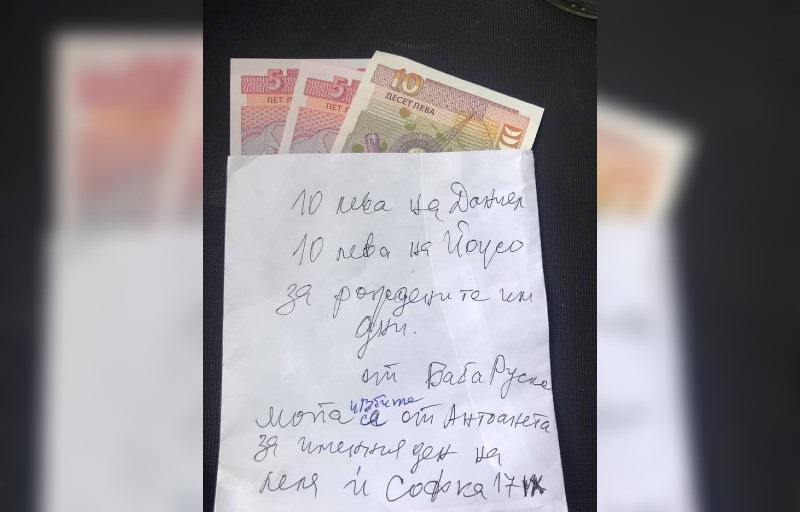 5
ПЕТ Л
5
ПЕТ Л
10
ДЕСЕТ ЛЕВА
10 лева на Даниел
10 лева на
за рождените им
дни.
от Баба Руска
са от Антоанета
за имения ден на
леля ѝ Софка 17 IX